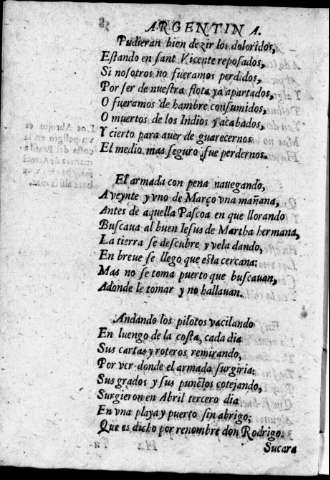 ARGENTINA.
Pudieran bien dezir los doloridos,
Estando en sant Vicente reposados,
Si nosotros no fueramos perdidos,
Por ser de nuestra flota ya apartados,
O fueramos de hambre consumidos,
O muertos de los Indios y acabados,
Y cierto para auer de guarecernos
El medio mas seguro, fue perdernos.
El armada con pena nauegando,
A veynte y vno de Março vna mañana,
Antes de aquella Pascoa en que llorando
Buscaua al buen Iesus de Martha hermana,
La tierra se descubre y vela dando,
En breue se llego que esta cercana:
Mas no se toma puerto que buscauan,
Adonde le tomar y no hallauan.
Andando los pilotos vacilando
En luengo de la costa, cada dia
Sus cartas y roteros remirando,
Por ver donde el armada surgiria:
Sus grados y sus punctos cotejando,
Surgieron en Abril tercero dia
En vna playa y puerto sin abrigo;
Que es dicho por renombre don Rodrigo.
Sucara